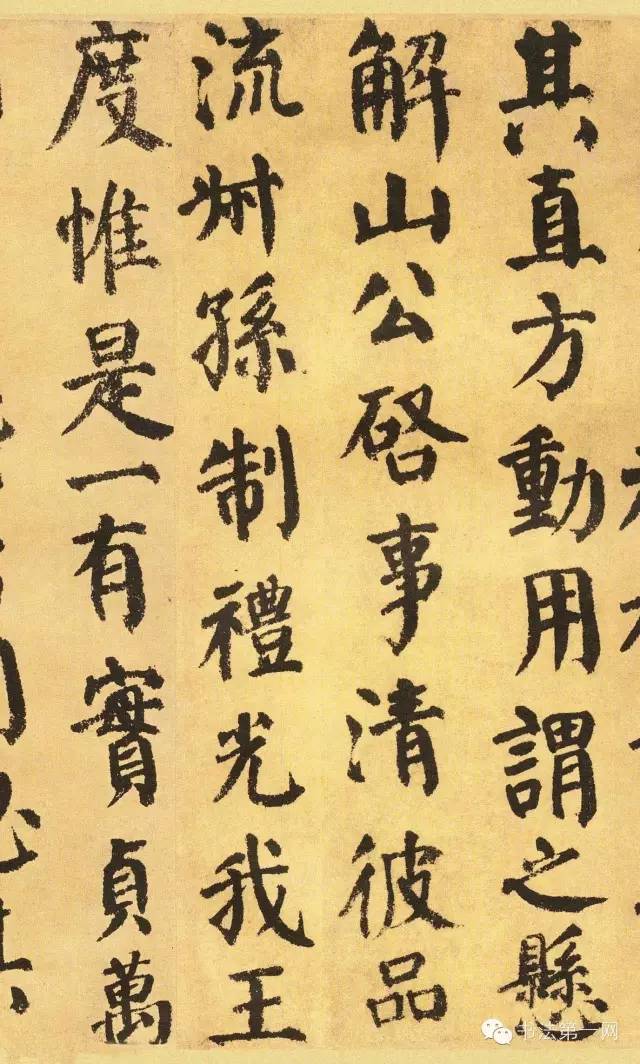 其直方動用謂之懸
解山公啓事清彼品
流叔孫制禮光我王
度惟是一有實貞萬
书法第一网